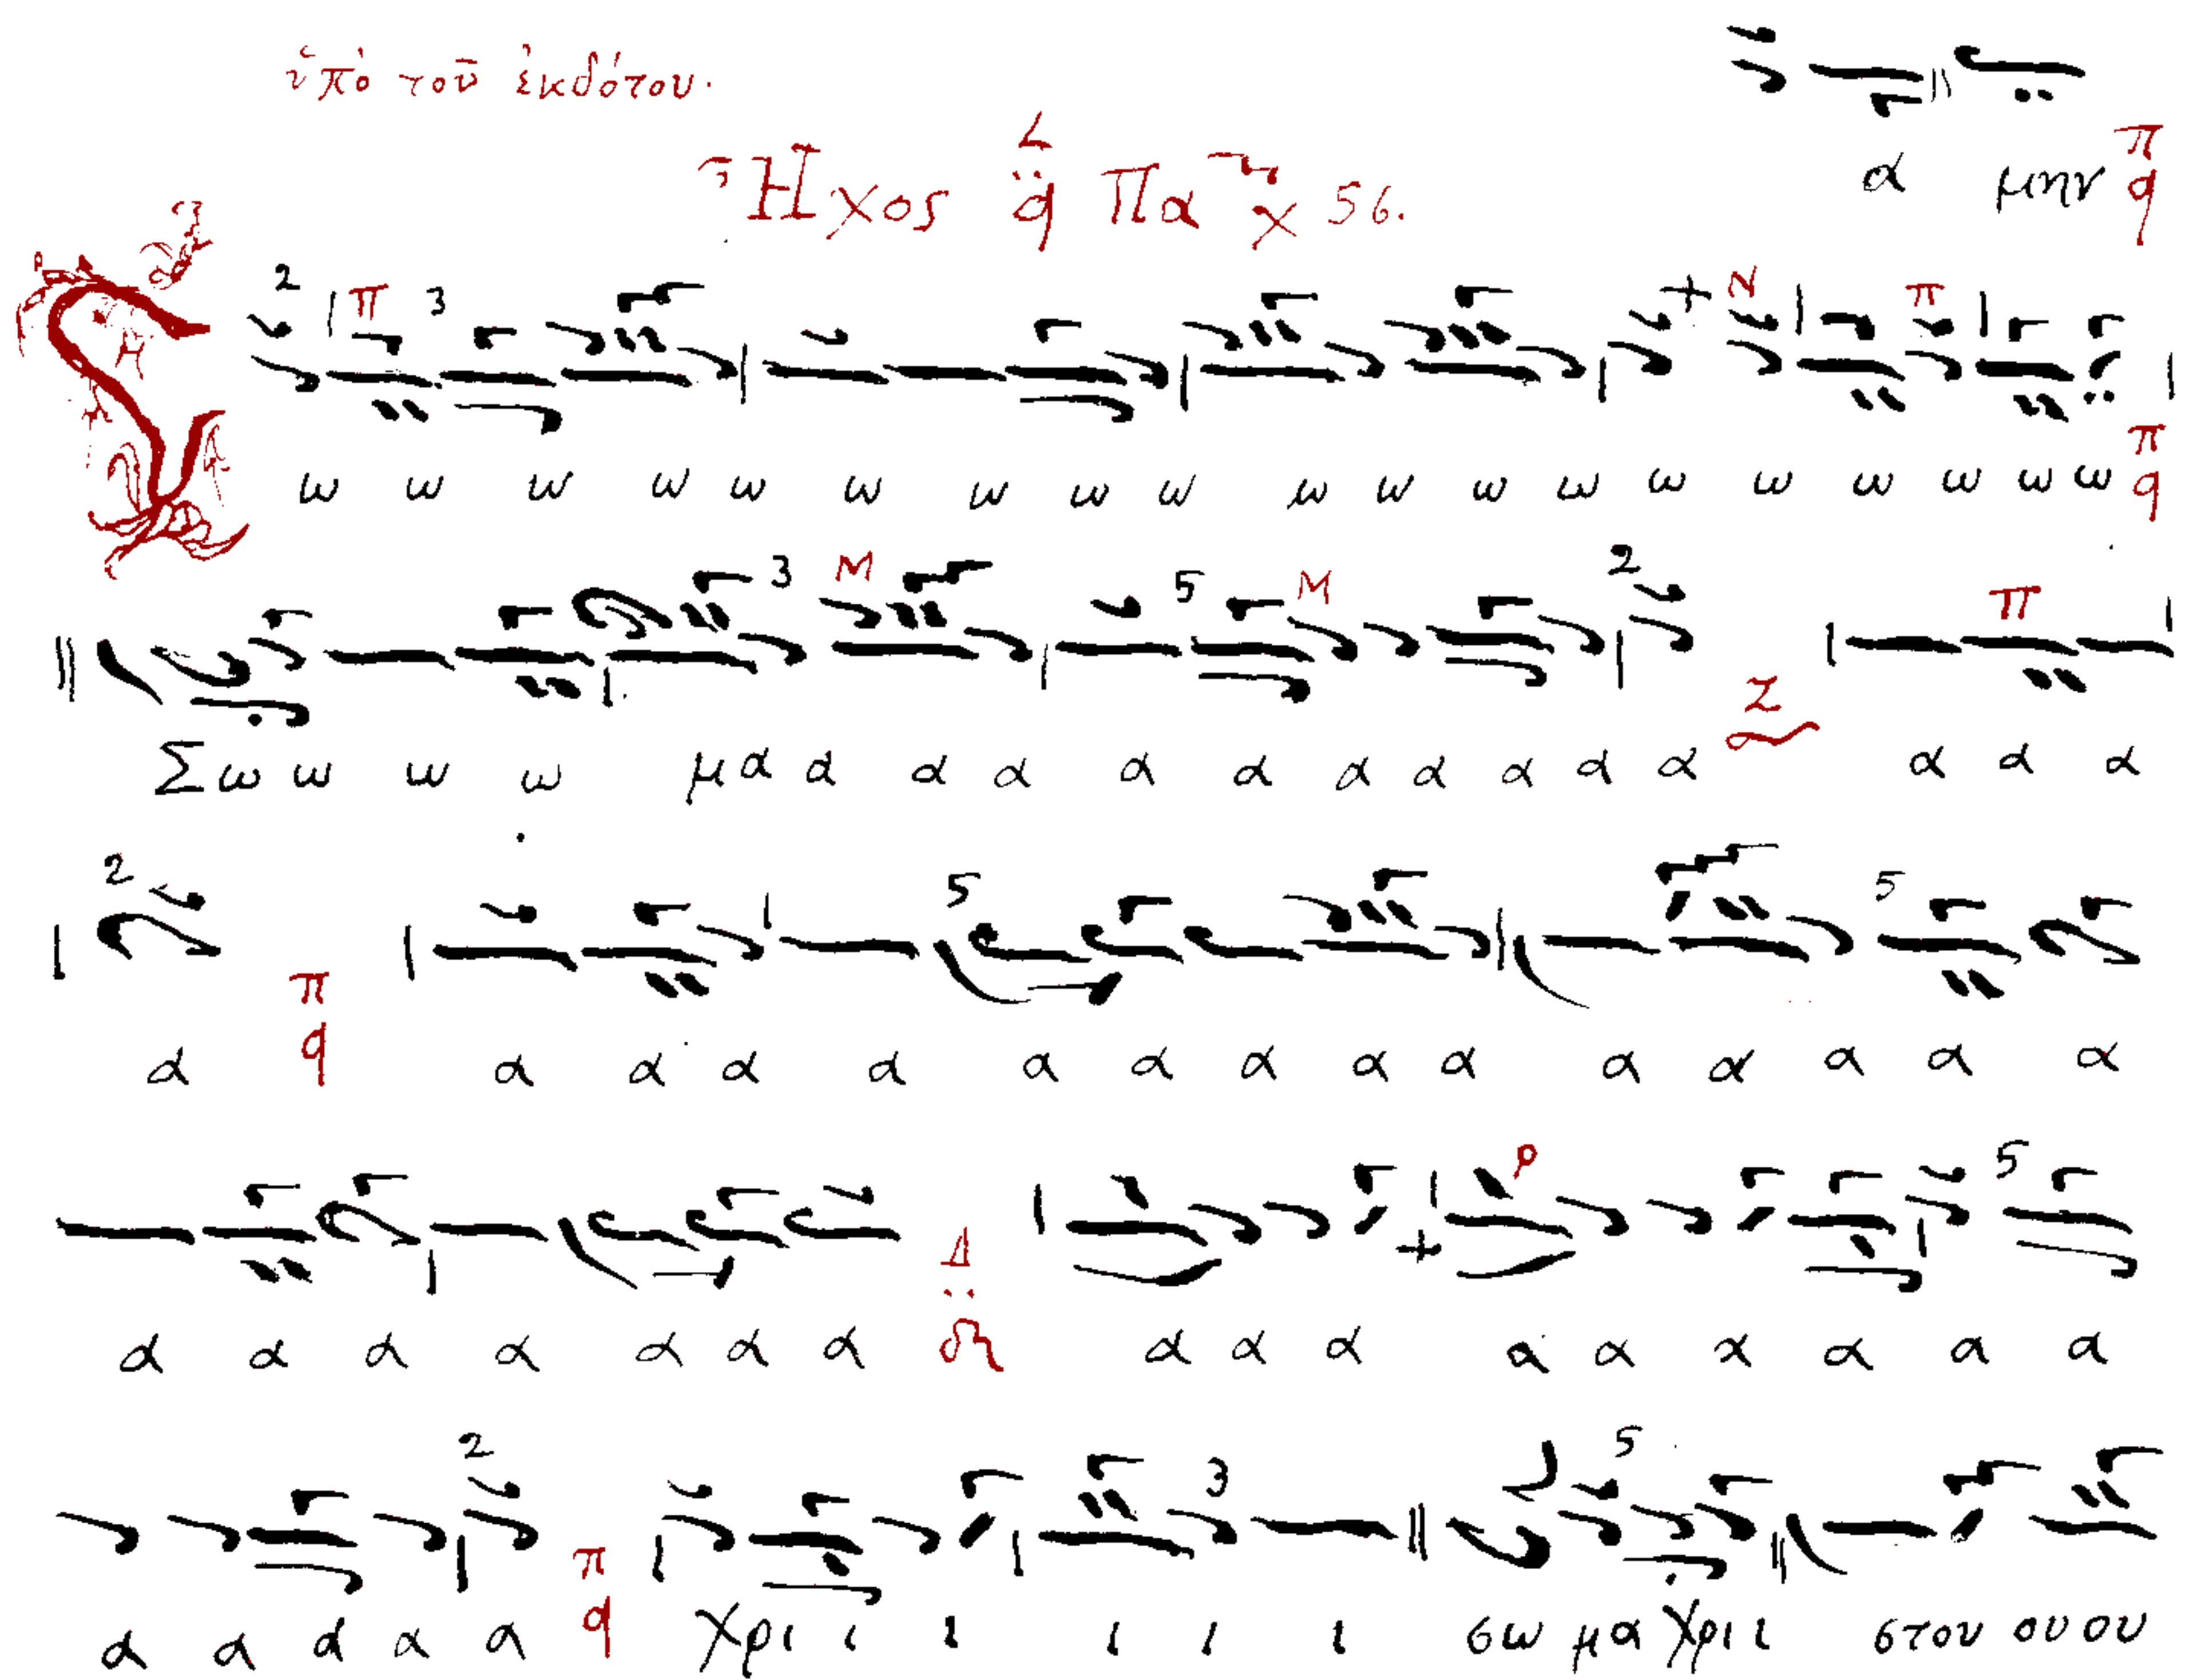 ὑπὸ τοῦ ἐκδότου.
Ἦχος q Πα χ 56.
α μην π q
Σ ω ω ω ω ω ω ω ω ω ω ω ω ω ω ω ω ω ω ω π q
Σω ω ω ω μα α α α α α α α α α α Ζ α α α
α π q α α α α α α α α α α α α α α
α α α α α α α Δ α α α α α α α α α
α α α α α π q Χρι ι ι ι ι ι σω μα Χρι ι στου ου ου